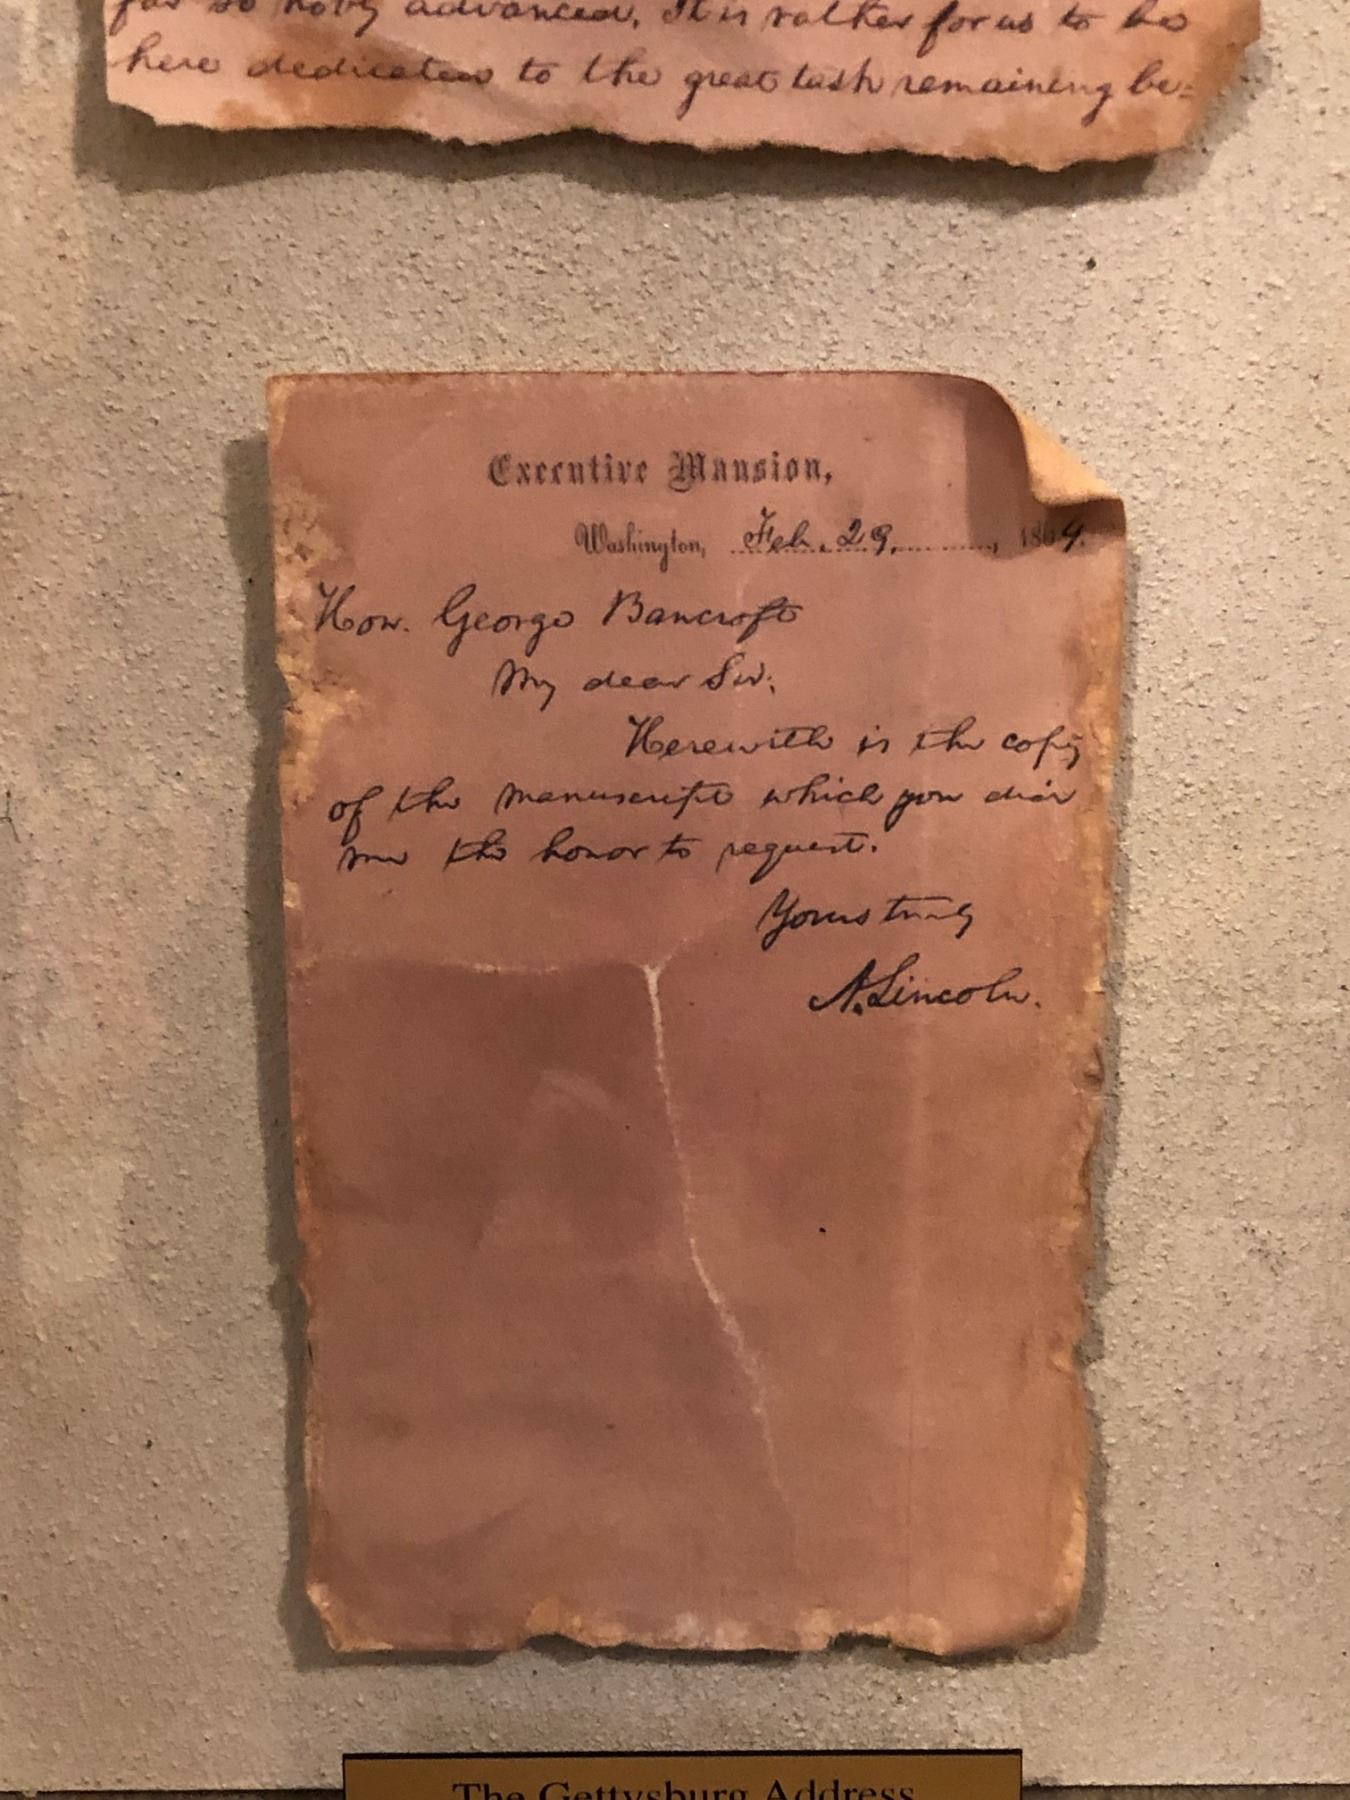 far so nobly advanced. It is rather for us to be
here dedicated to the great task remaining be=
Executive Mansion,
Washington, Feb. 29, 1864.
Hon. George Bancroft
My dear Sir:
Herewith is the copy
of the manuscript which you did
me the honor to request.
Yours truly
A. Lincoln.
The Gettysburg Address